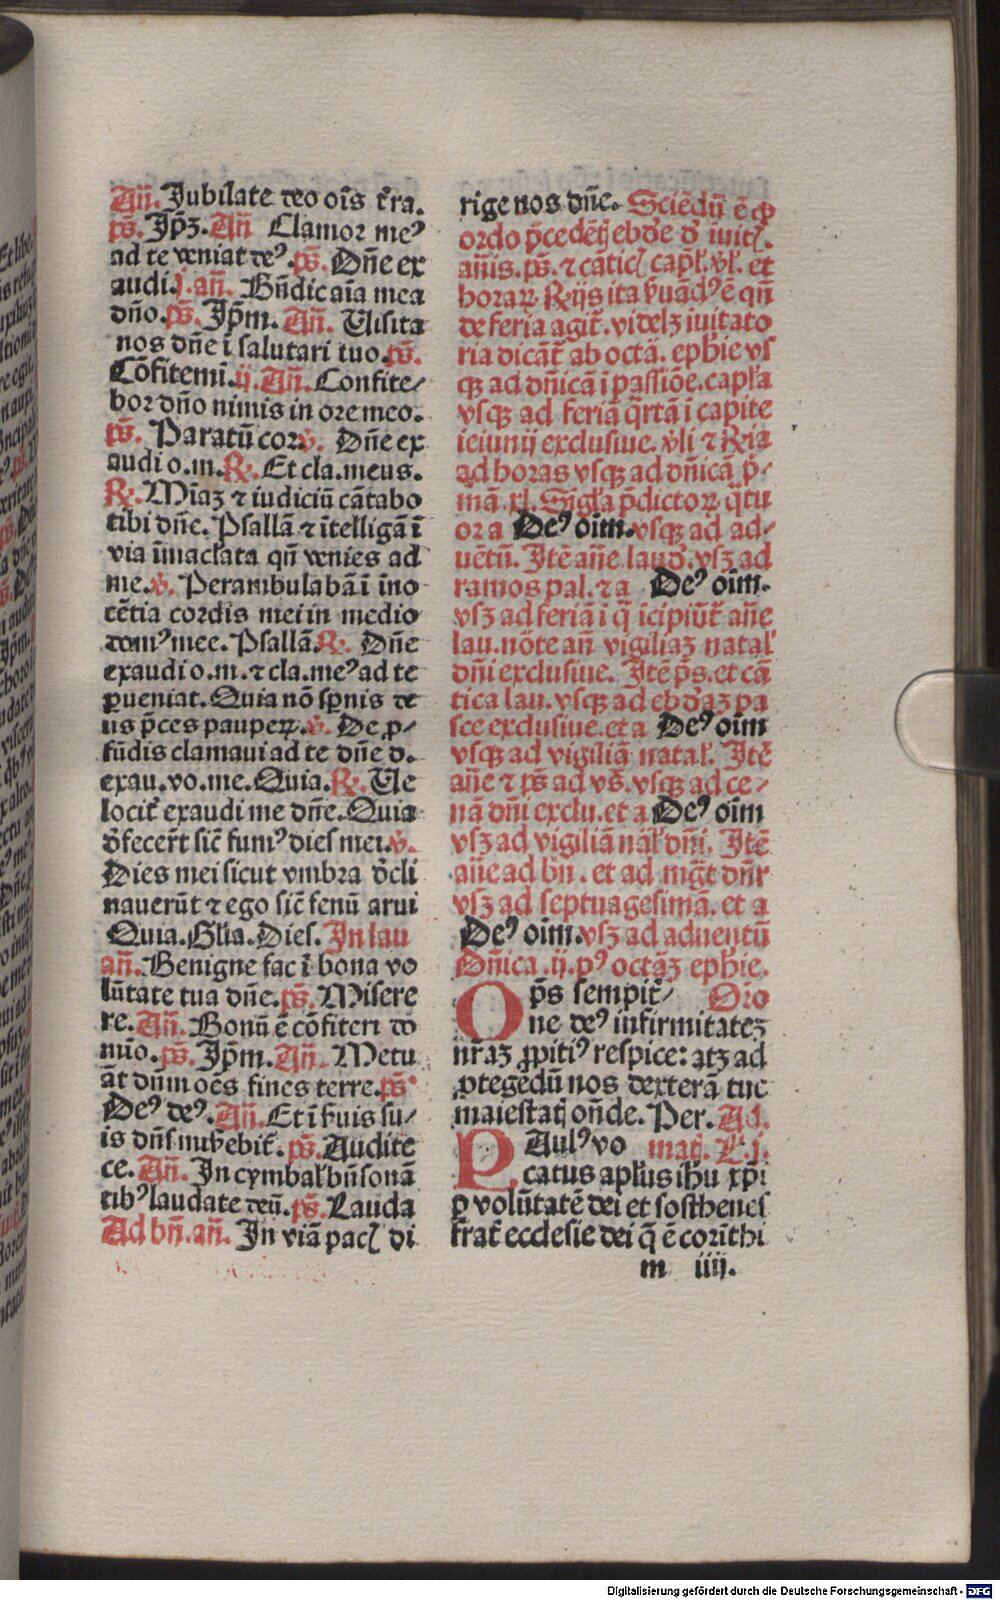 Añ. Jubilate deo oīs t̄ra.
ps̄. Jp̄ꝫ. Añ Clamor meꝰ
ad te veniat deꝰ. ps̄. Dn̄e ex
audi. j. añ. Bn̄dic aīa mea
dño. ps̄. Jp̄m. Añ. Uisita
nos dn̄e ī salutari tuo. ps̄.
Cōfitemī. ij. Añ. Confite⸗
bor dño nimis in ore meo.
ps̄. Paratū cor. v̄. Dn̄e ex
audi o. m. ℟. Et cla. meus.
℟. Mīaꝫ ⁊ iudiciū cātabo
tibi dn̄e. Psallā ⁊ ītelligā ī
via īmaclata qn̄ venies ad
me. v̄. Perambulabā ī īno
cētia cordis mei in medio
domꝰ mee. Psallā. ℟. Dn̄e
exaudi o. m. ⁊ cla. meꝰ ad te
ꝑueniat. Quia nō sꝑnis de
us p̄ces pauperꝝ. v̄. De ꝓ⸗
fūdis clamaui ad te dn̄e d.
exau. vo. me. Quia. ℟. Ue
locit̄ exaudi me dn̄e. Quia
d̄fecer̄t sic̄ fumꝰ dies mei. v̄.
Dies mei sicut vmbra d̄cli
nauerūt ⁊ ego sic̄ fenū arui
Quia. Glia. Dies. In lau
añ. Benigne fac ī bona vo
lūtate tua dn̄e. ps̄. Misere
re. Añ. Bonū ē cōfiteri do
mīo. ps̄. Jp̄m. Añ. Metu
āt dnm oēs fines terre. ps̄
Deꝰ deꝰ. Añ. Et ī s̄uis su⸗
is dn̄s mis̄ebit̄. ps̄. Audite
ce. Añ. In cymbal̄ bn̄sonā
tibꝰ laudate deū. ps̄. Lauda
Ad bñ. añ. In viā pacꝭ di
rige nos dn̄e. Sciēdū ē ꝙ
ordo p̄cedētꝭ ebde d̄ iuitꝭ.
añis. ps̄. ⁊ cāticꝭ capl̄. vl̄. et
horarꝝ ℟ijs ita s̄uādꝰ ē qn̄
de feria agit̄. videlꝫ iuitato
ria dicāt̄ ab octā. ephie vs
qꝫ ad dn̄icā ī passiōe. capl̄a
vsqꝫ ad feriā q̄rtā ī capite
ieiunij exclusiue. v̄li ⁊ ℟ia
ad horas vsqꝫ ad dn̄icā p̄⸗
mā. xl. Sigl̄a p̄dictorꝝ q̄tu
or a Deꝰ oīm. vsqꝫ ad ad⸗
uētū. Itē añe laud̄. vsꝫ ad
ramos pal. ⁊ a Deꝰ oīm.
vsꝫ ad feriā ī q̄ īcipiūt̄ añe
lau. nōte añ vigiliaꝫ natal̄
dn̄i exclusiue. Itē ps̄. et cā
tica lau. vsqꝫ ad ebd̄aꝫ pa
sce exclusiue. et a Deꝰ oīm
vsqꝫ ad vigiliā natal̄. Itē
añe ⁊ ps̄ ad vs̄. vsqꝫ ad ce⸗
nā dn̄i exclu. et a Deꝰ oīm
vsꝫ ad vigiliā nāl̄ dn̄i. Itē
añe ad bñ. et ad mg̅t dn̄r
vsꝫ ad septuagesimā. et a
Deꝰ oīm. vsꝫ ad aduentū
Dn̄ica. ij. pꝰ octāꝫ ephie.
Op̄s sempit̄⸗ Or̄o
ne deꝰ infirmitateꝫ
nr̄aꝫ ꝓpitiꝰ respice: atꝫ ad
ꝓtegedū nos dexterā tue
maiestatꝭ on̄de. Per. Ad.
PAulꝰ vo mat̄. L̄. j.
catus apl̄us ihu xp̄i
ꝑ volūtatē dei et sosthenes
frat̄ ecclesie dei q̄ ē corīthi
m iiij.
Digitalisierung gefördert durch die Deutsche Forschungsgemeinschaft - DFG